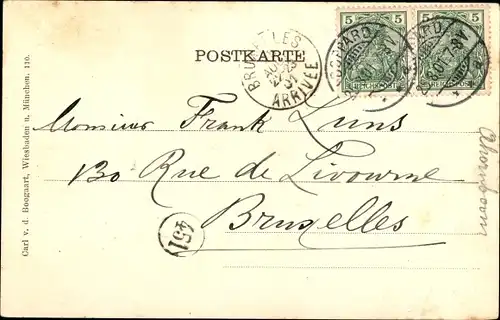 5 5
5 5
REICHSPOST
BRUXELLES
ARRIVEE
POSTKARTE
Monsieur Frank Luns
130 Rue de Livourne
Bruxelles
451
Carl v. d. Boogaart, Wiesbaden u. München. 110.